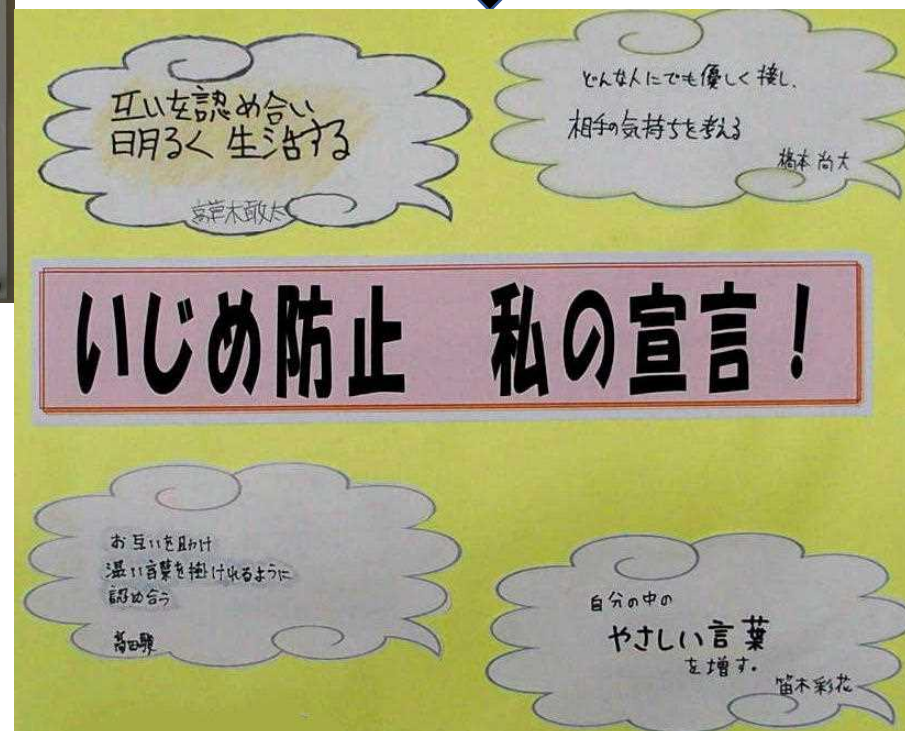 互いを認め合い
明るく生活する
宮草木敢太
どんな人にでも優しく接し、
相手の気持ちを考える
橋本 尚大
いじめ防止 私の宣言!
お互いを助け
温い言葉を掛けれるように
認め合う
髙田駿
自分の中の
やさしい言葉
を増す。
笛木彩花